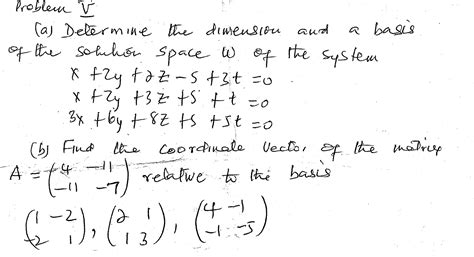 Problem V
(a) Determine the dimension and a basis
of the solution space W of the system
x + 2y + 2z - s + 3t = 0
x + 2y + 3z + s + t = 0
3x + 6y + 8z + s + 5t = 0
(b) Find the coordinate vector of the matrix
A = (4 -11
-11 -7) relative to the basis
(1 -2
-2 1), (2 1
1 3), (4 -1
-1 -5)